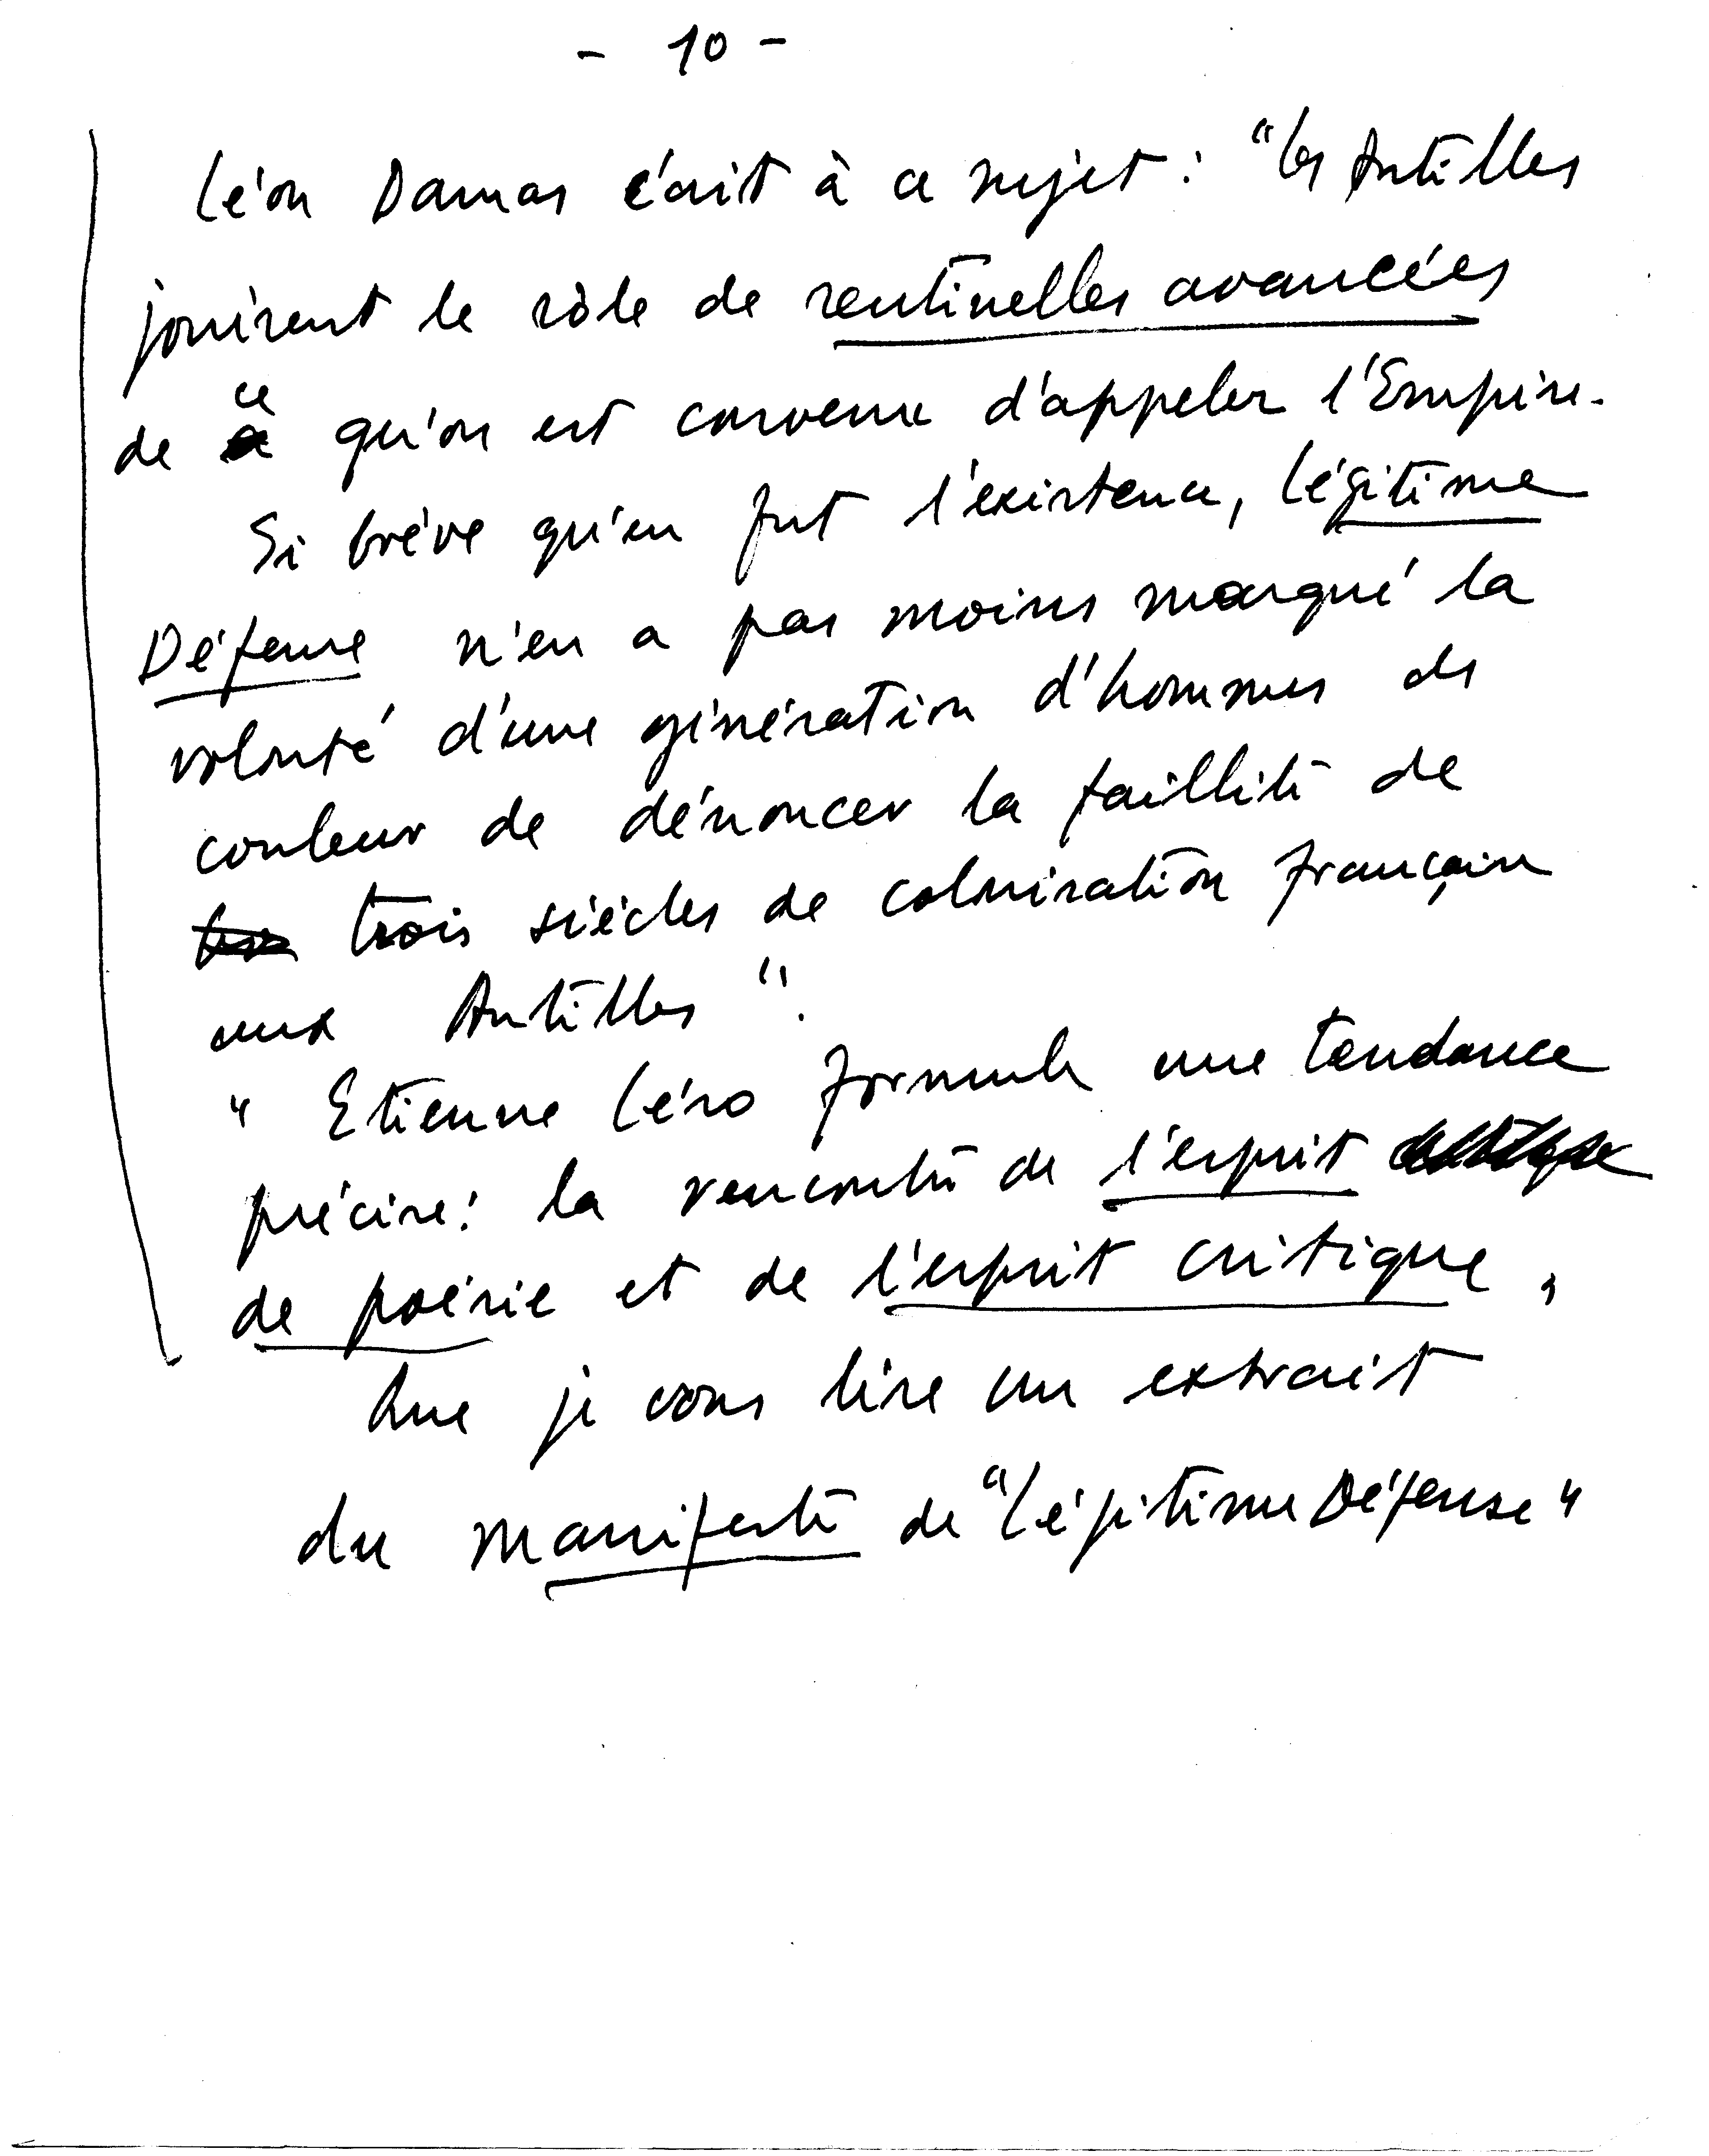 - 10 -
Léon Damas écrit à ce sujet : "les Antilles
jouèrent le rôle de sentinelles avancées
de ce qu'on est convenu d'appeler l'Empire.
Si brève qu'en fut l'existence, Légitime
Défense n'en a pas moins marqué la
volonté d'une génération d'hommes de
couleur de dénoncer la faillite de
trois siècles de colonisation française
aux Antilles".
" Etienne Léro formule une tendance
précise : la rencontre de l'esprit
de poésie et de l'esprit critique,
Que je vous lise un extrait
du manifeste de "Légitime Défense"